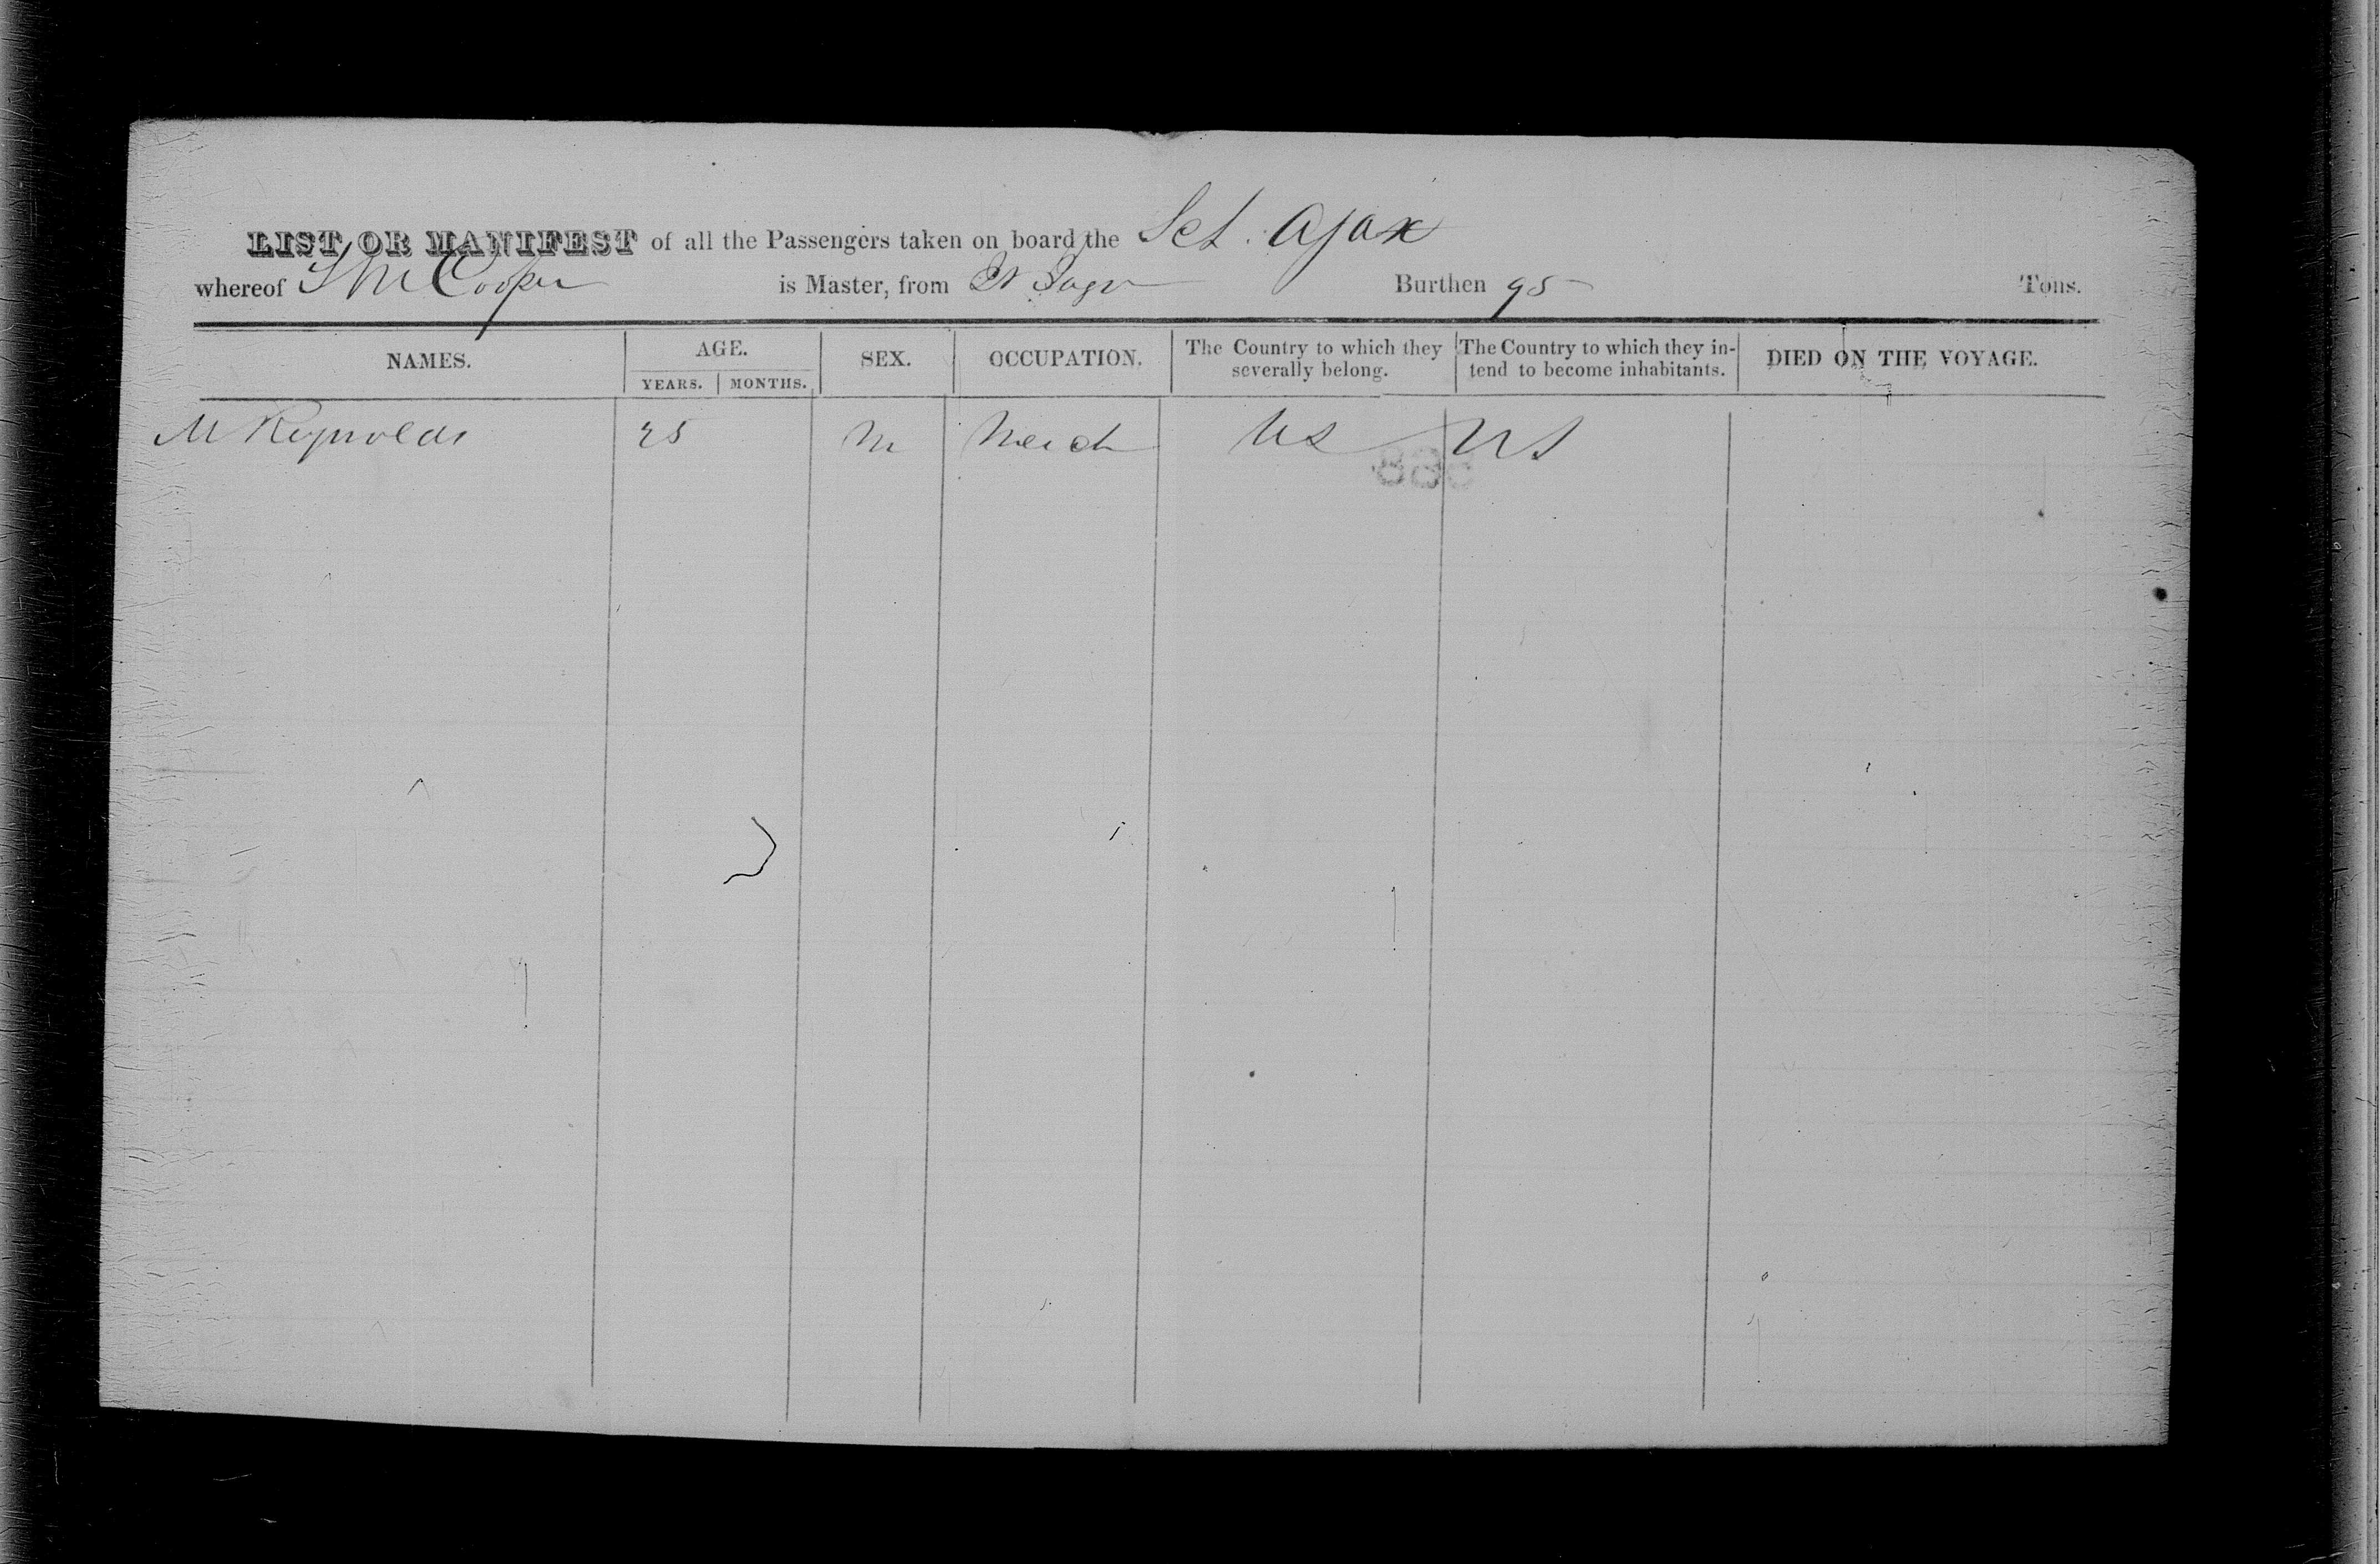 LIST OR MANIFEST of all the Passengers taken on board the Sch. Ajax
whereof Cooper is Master, from St Iago Burthen 95 Tons.
NAMES. AGE. YEARS. MONTHS. SEX. OCCUPATION. The Country to which they severally belong. The Country to which they intend to become inhabitants. DIED ON THE VOYAGE.
M Reynolds 25 M Merch US US